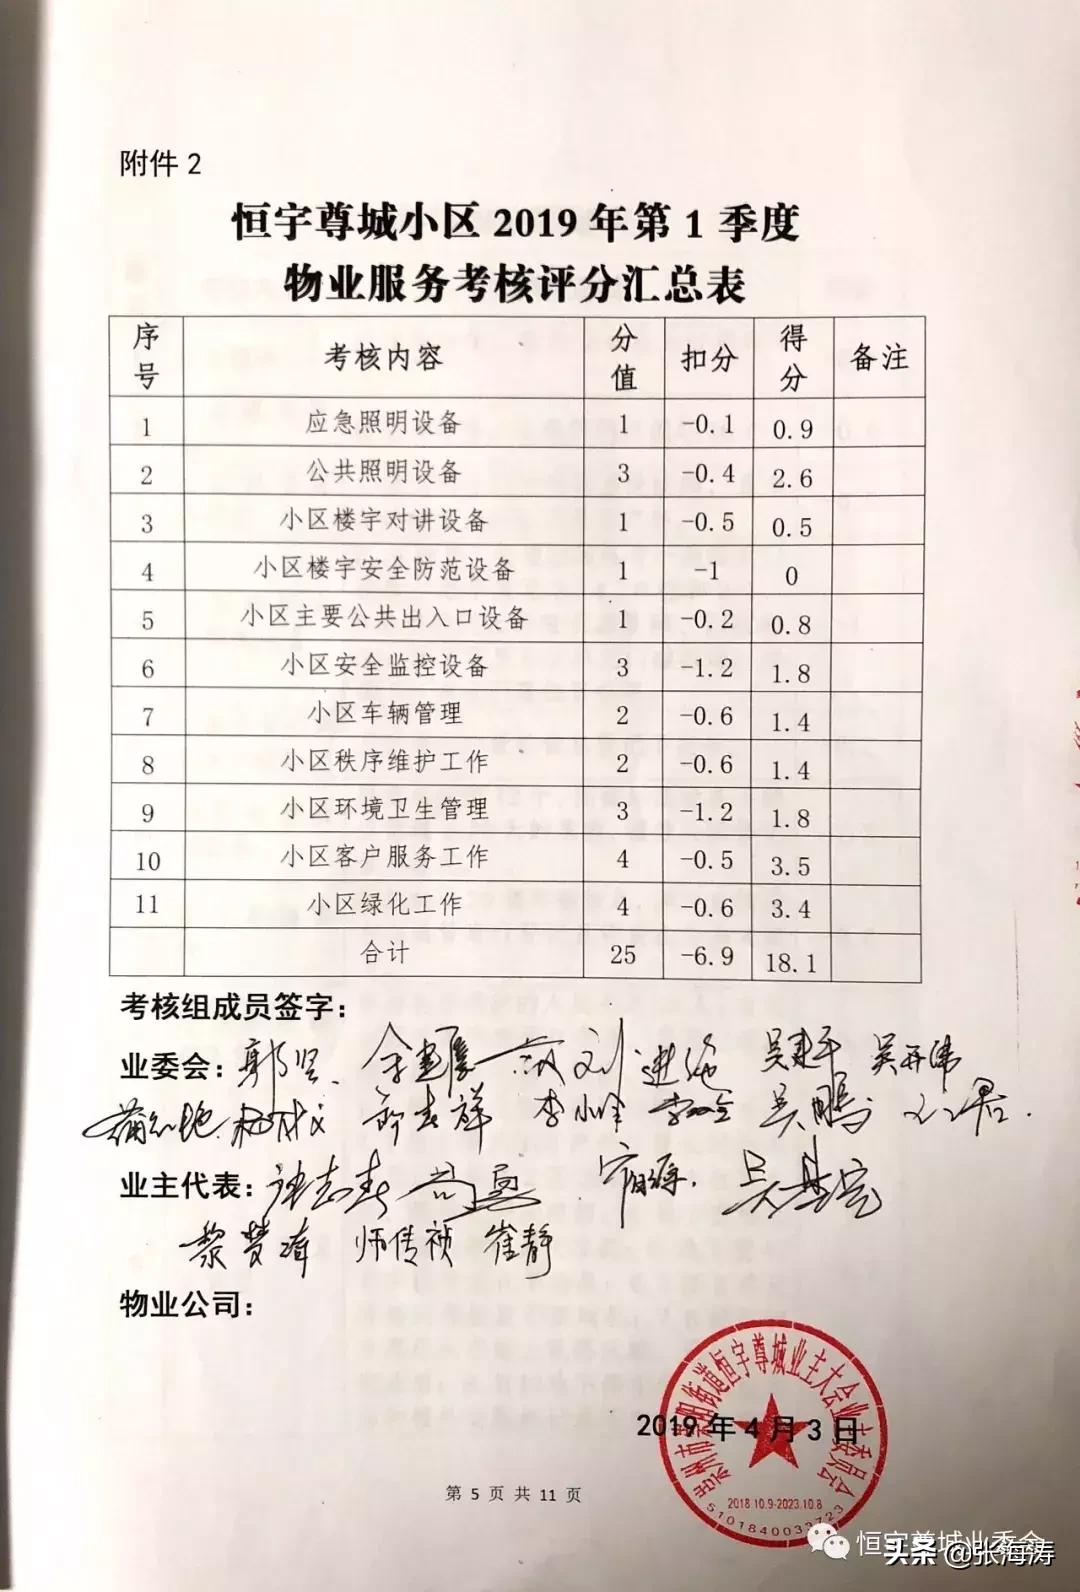 附件 2
恒宇尊城小区 2019 年第 1 季度
物业服务考核评分汇总表
序号 考核内容 分值 扣分 得分 备注
1 应急照明设备 1 -0.1 0.9
2 公共照明设备 3 -0.4 2.6
3 小区楼宇对讲设备 1 -0.5 0.5
4 小区楼宇安全防范设备 1 -1 0
5 小区主要公共出入口设备 1 -0.2 0.8
6 小区安全监控设备 3 -1.2 1.8
7 小区车辆管理 2 -0.6 1.4
8 小区秩序维护工作 2 -0.6 1.4
9 小区环境卫生管理 3 -1.2 1.8
10 小区客户服务工作 4 -0.5 3.5
11 小区绿化工作 4 -0.6 3.4
合计 25 -6.9 18.1
考核组成员签字：
业委会： 吴建平 吴开伟
吴鹏
业主代表：
师传祯 崔静
物业公司：
街道恒宇尊城业主大会业主委员会
2019 年 4 月 3 日
2018.10.9-2023.10.8
5101840033723
第 5 页 共 11 页
恒宇尊城业委会
头条 @张海涛